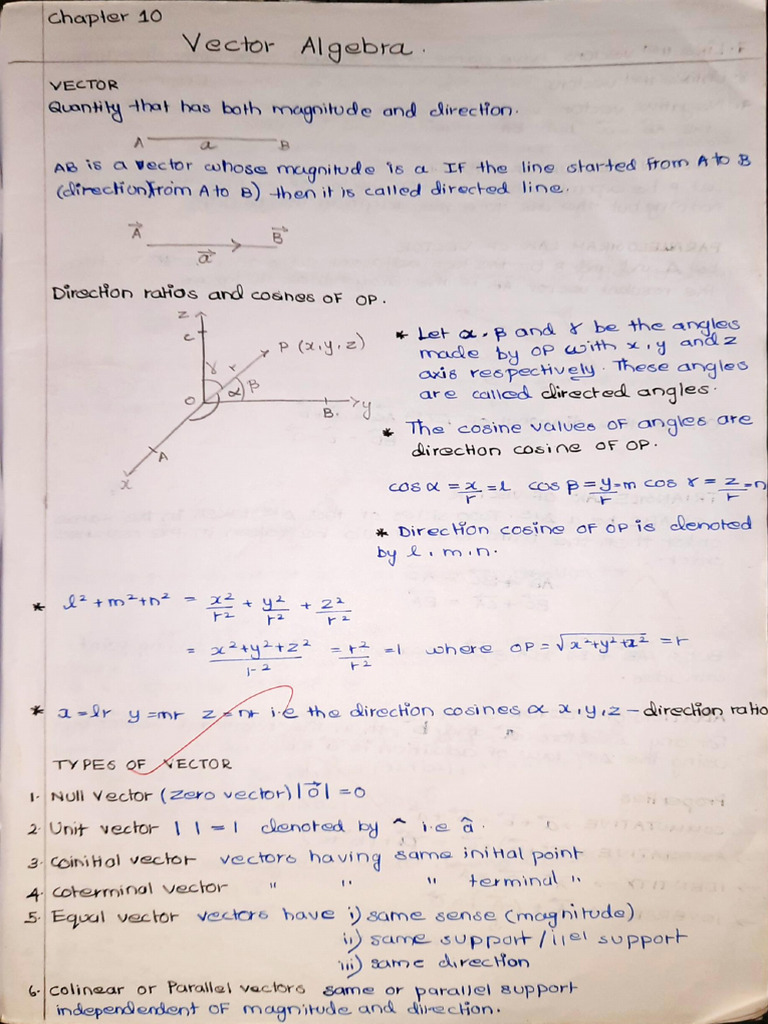 Chapter 10
Vector Algebra.
VECTOR
Quantity that has both magnitude and direction.
A a B
AB is a vector whose magnitude is a. IF the line started from A to B
(direction from A to B) then it is called directed line.
A⃗ a⃗ B⃗
Direction ratios and cosines OF OP.
z
c
P (x, y, z)
γ r
α β
O
B y
A
x
* Let α, β and γ be the angles
made by OP with x, y and z
axis respectively. These angles
are called directed angles.
* The cosine values of angles are
direction cosine OF OP.
cos α = x/r = l cos β = y/r = m cos γ = z/r = n
* Direction cosine OF OP is denoted
by l, m, n.
* l² + m² + n² = x²/r² + y²/r² + z²/r²
= x² + y² + z²/r² = r²/r² = 1 where OP = √x²+y²+z² = r
* x = lr y = mr z = nr i.e the direction cosines ∝ x, y, z – direction ratio
TYPES OF VECTOR
1. Null vector (zero vector) |0⃗| = 0
2. Unit vector | | = 1 denoted by ^ i.e â.
3. Coinitial vector vectors having same initial point
4. Coterminal vector " " " terminal "
5. Equal vector vectors have i) same sense (magnitude)
ii) same support / llel support
iii) same direction
6. Colinear or Parallel vectors same or parallel support
independendent OF magnitude and direction.